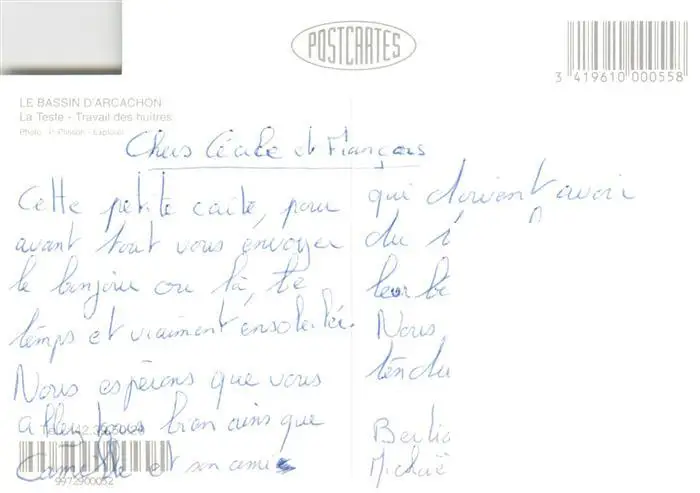 POSTCARTES
3 419610 000558
LE BASSIN D'ARCACHON
La Teste - Travail des huîtres
Photo : P. Plisson - Explorer
Chers Cécile et François
Cette petite carte, pour
avant tout vous envoyer
le bonjour ou là, le
temps et vraiment ensoleillé.
Nous espérons que vous
allez tous bien ainsi que
Camille et son amie
9972900052
qui doivent avoir
du
leur
Nous